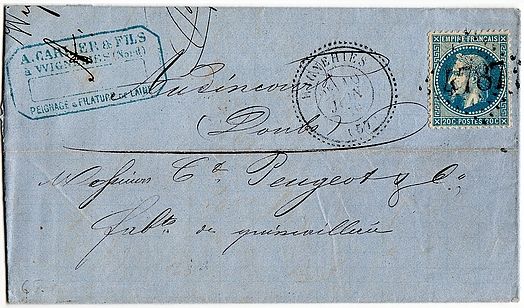 A. CARLIER & FILS
à WIGNEHIES (Nord)
PEIGNAGE & FILATURE DE LAINE
WIGNEHIES
19
JUIN
(57)
EMPIRE FRANÇAIS
20C POSTES 20C
Audincourt
Doubs
Messieurs Ct. Peugeot & Co.
fabts. de quincaillerie